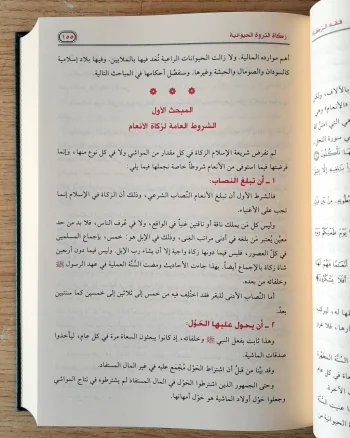 زكاة الثروة الحيوانية
١٥٥
أهم موارده المالية. ولا زالت الحيوانات الراعية تُعَد فيها بالملايين. وفيها بلاد إسلامية
كالسودان والصومال والحبشة وغيرها. وسنفصّل أحكامها في المباحث التالية.
المبحث الأول
الشروط العامة لزكاة الأنعام
لم تفرض شريعة الإسلام الزكاة في كل مقدار من المواشي ولا في كل نوع منها، وإنما
فرضتها فيما استوفى من الأنعام شروطاً خاصة نجملها فيما يلي:
١ ـ أن تبلغ النصاب:
فالشرط الأول أن تبلغ الأنعام النِّصاب الشرعي، وذلك أن الزكاة في الإسلام إنما
تجب على الأغنياء.
وليس كل مَن يملك ناقة أو ناقتين غنياً في الواقع، ولا في عُرف الناس، فلا بد من حد
معيَّن يُعتبر مَن بلغه في أدنى مراتب الغنى، وذلك في الإبل هو: خمس، بإجماع المسلمين
في كل العصور، فليس فيما دونها زكاة واجبة إلا أن يشاء رب الإبل. وليس فيما دون أربعين
شاة زكاة بالإجماع أيضاً. بهذا جاءت الأحاديث ومضت السُّنَّة العملية في عهد الرسول ﷺ
وخلفائه من بعده.
أما النِّصاب الأدنى للبقر فقد اختُلِف فيه من خمس إلى ثلاثين إلى خمسين كما سنتبين
بعدُ.
٢ ـ أن يحول عليها الحَوْل:
وهذا ثابت بفعل النبي ﷺ وخلفائه، إذ كانوا يبعثون السعاة مرة في كل عام، ليأخذوا
صدقات الماشية.
وقد بيَّنا من قبلُ أن اشتراط الحَوْل مُجمَع عليه في غير المال المستفاد.
وحتى الجمهور الذين اشترطوا الحَوْل في المال المستفاد لم يشترطوه في نتاج المواشي
وجعلوا حَوْل أولاد الماشية هو حَوْل أمهاتها.